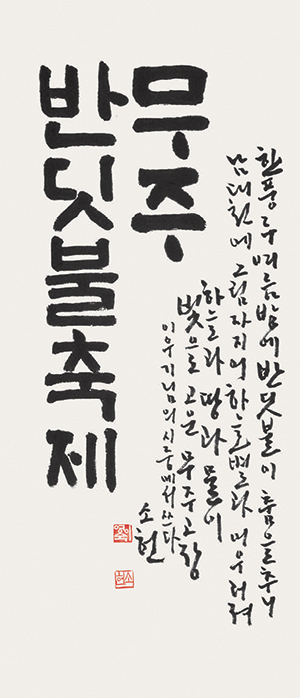 무주
반딧불축제
한풍루 여름밤에 반딧불이 춤을추니
남대천에 그림자지어 한호별과 어우러져
하늘과 땅과 물이
빛으로 고운 무주고장
이우기님의 시 중에서 쓰다
소현